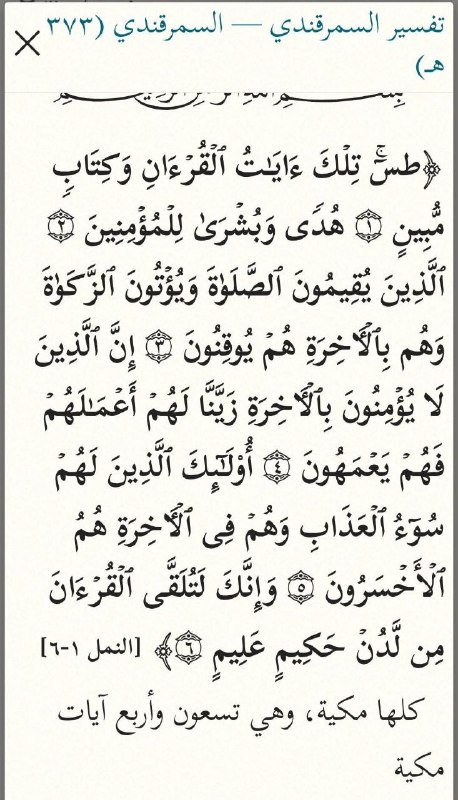 تفسير السمرقندي — السمرقندي (٣٧٣
هـ)
﴿طسٓۚ تِلۡكَ ءَايَٰتُ ٱلۡقُرۡءَانِ وَكِتَابٖ
مُّبِينٍ ١ هُدٗى وَبُشۡرَىٰ لِلۡمُؤۡمِنِينَ ٢
ٱلَّذِينَ يُقِيمُونَ ٱلصَّلَوٰةَ وَيُؤۡتُونَ ٱلزَّكَوٰةَ
وَهُم بِٱلۡأٓخِرَةِ هُمۡ يُوقِنُونَ ٣ إِنَّ ٱلَّذِينَ
لَا يُؤۡمِنُونَ بِٱلۡأٓخِرَةِ زَيَّنَّا لَهُمۡ أَعۡمَٰلَهُمۡ
فَهُمۡ يَعۡمَهُونَ ٤ أُوْلَٰٓئِكَ ٱلَّذِينَ لَهُمۡ
سُوٓءُ ٱلۡعَذَابِ وَهُمۡ فِي ٱلۡأٓخِرَةِ هُمُ
ٱلۡأَخۡسَرُونَ ٥ وَإِنَّكَ لَتُلَقَّى ٱلۡقُرۡءَانَ
مِن لَّدُنۡ حَكِيمٍ عَلِيمٍ ٦﴾ [النمل ١-٦]
كلها مكية، وهي تسعون وأربع آيات
مكية